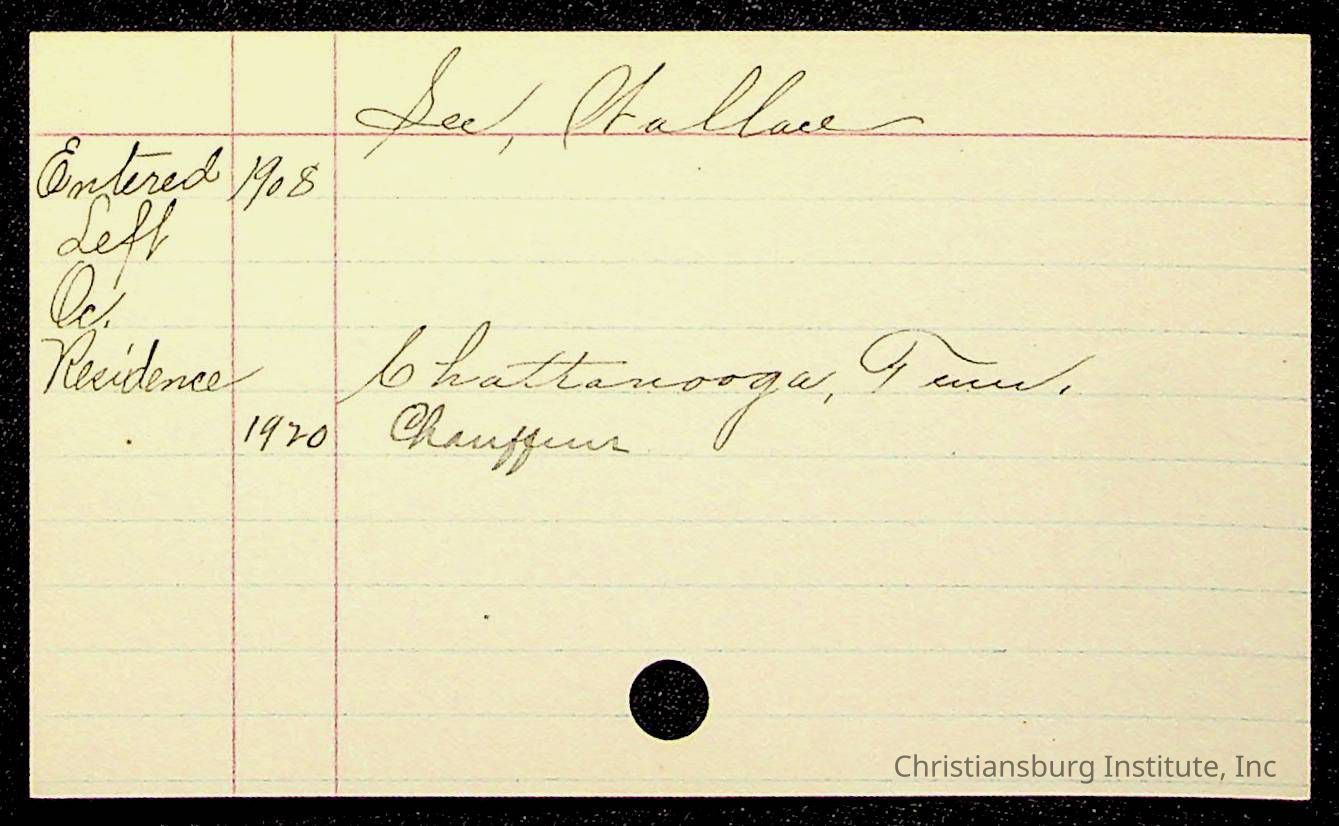 Wallace
Entered 1908
Left
Oc.
Residence Chattanooga, Tenn.
1920 Chauffeur
Christiansburg Institute, Inc